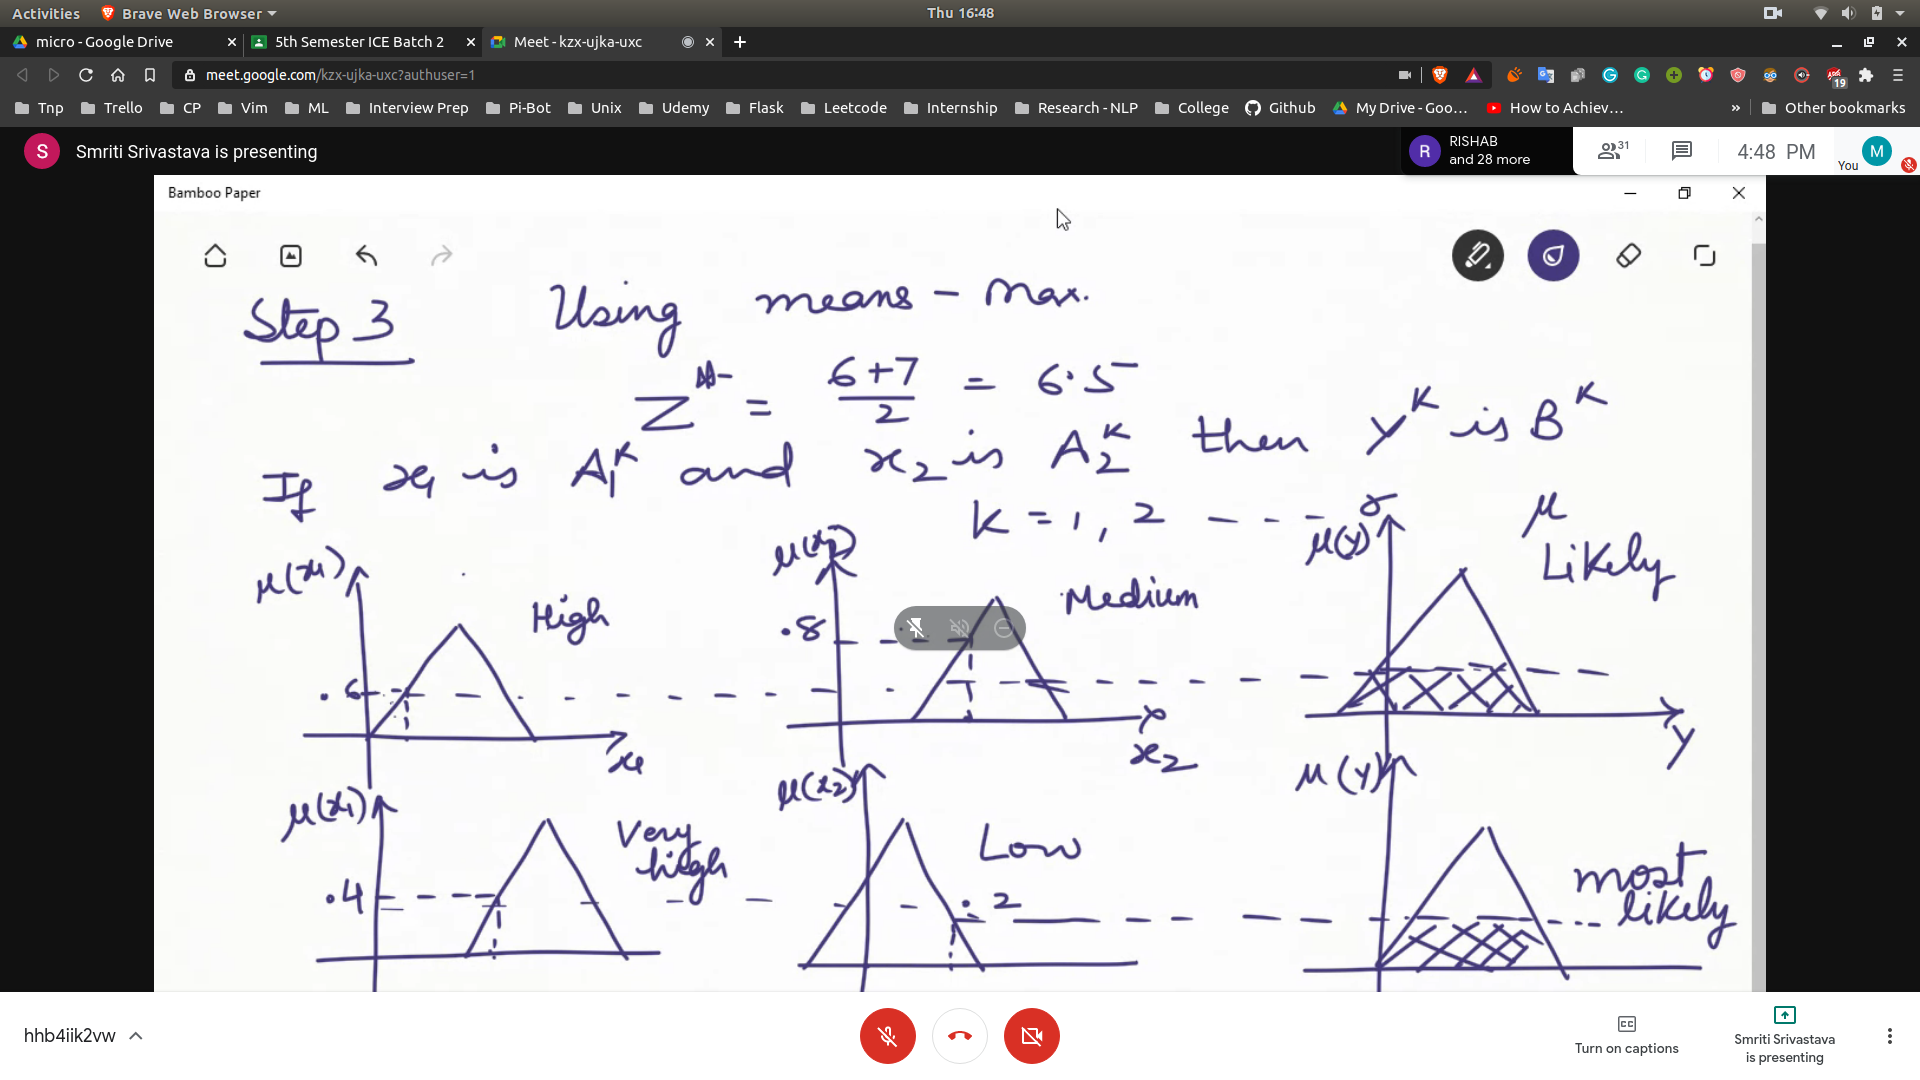 Activities Brave Web Browser Thu 16:48
micro - Google Drive 5th Semester ICE Batch 2 Meet - kzx-ujka-uxc
meet.google.com/kzx-ujka-uxc?authuser=1 19
Tnp Trello CP Vim ML Interview Prep Pi-Bot Unix Udemy Flask Leetcode Internship Research - NLP College Github My Drive - Goo... How to Achiev... » Other bookmarks
S Smriti Srivastava is presenting
R RISHAB
and 28 more
31 4:48 PM You M
Bamboo Paper
Step 3 Using means - Max.
Z = 6+7 / 2 = 6.5
If x1 is A1^K and x2 is A2^K then Y^K is B^K
K = 1, 2 - - - r
μ(x1) High x1
μ(x2) .8 Medium x2
μ(y) μ Likely y
μ(x1) .4 Very high
μ(x2) Low .2
μ(y) most likely
hhb4iik2vw
Turn on captions
Smriti Srivastava
is presenting